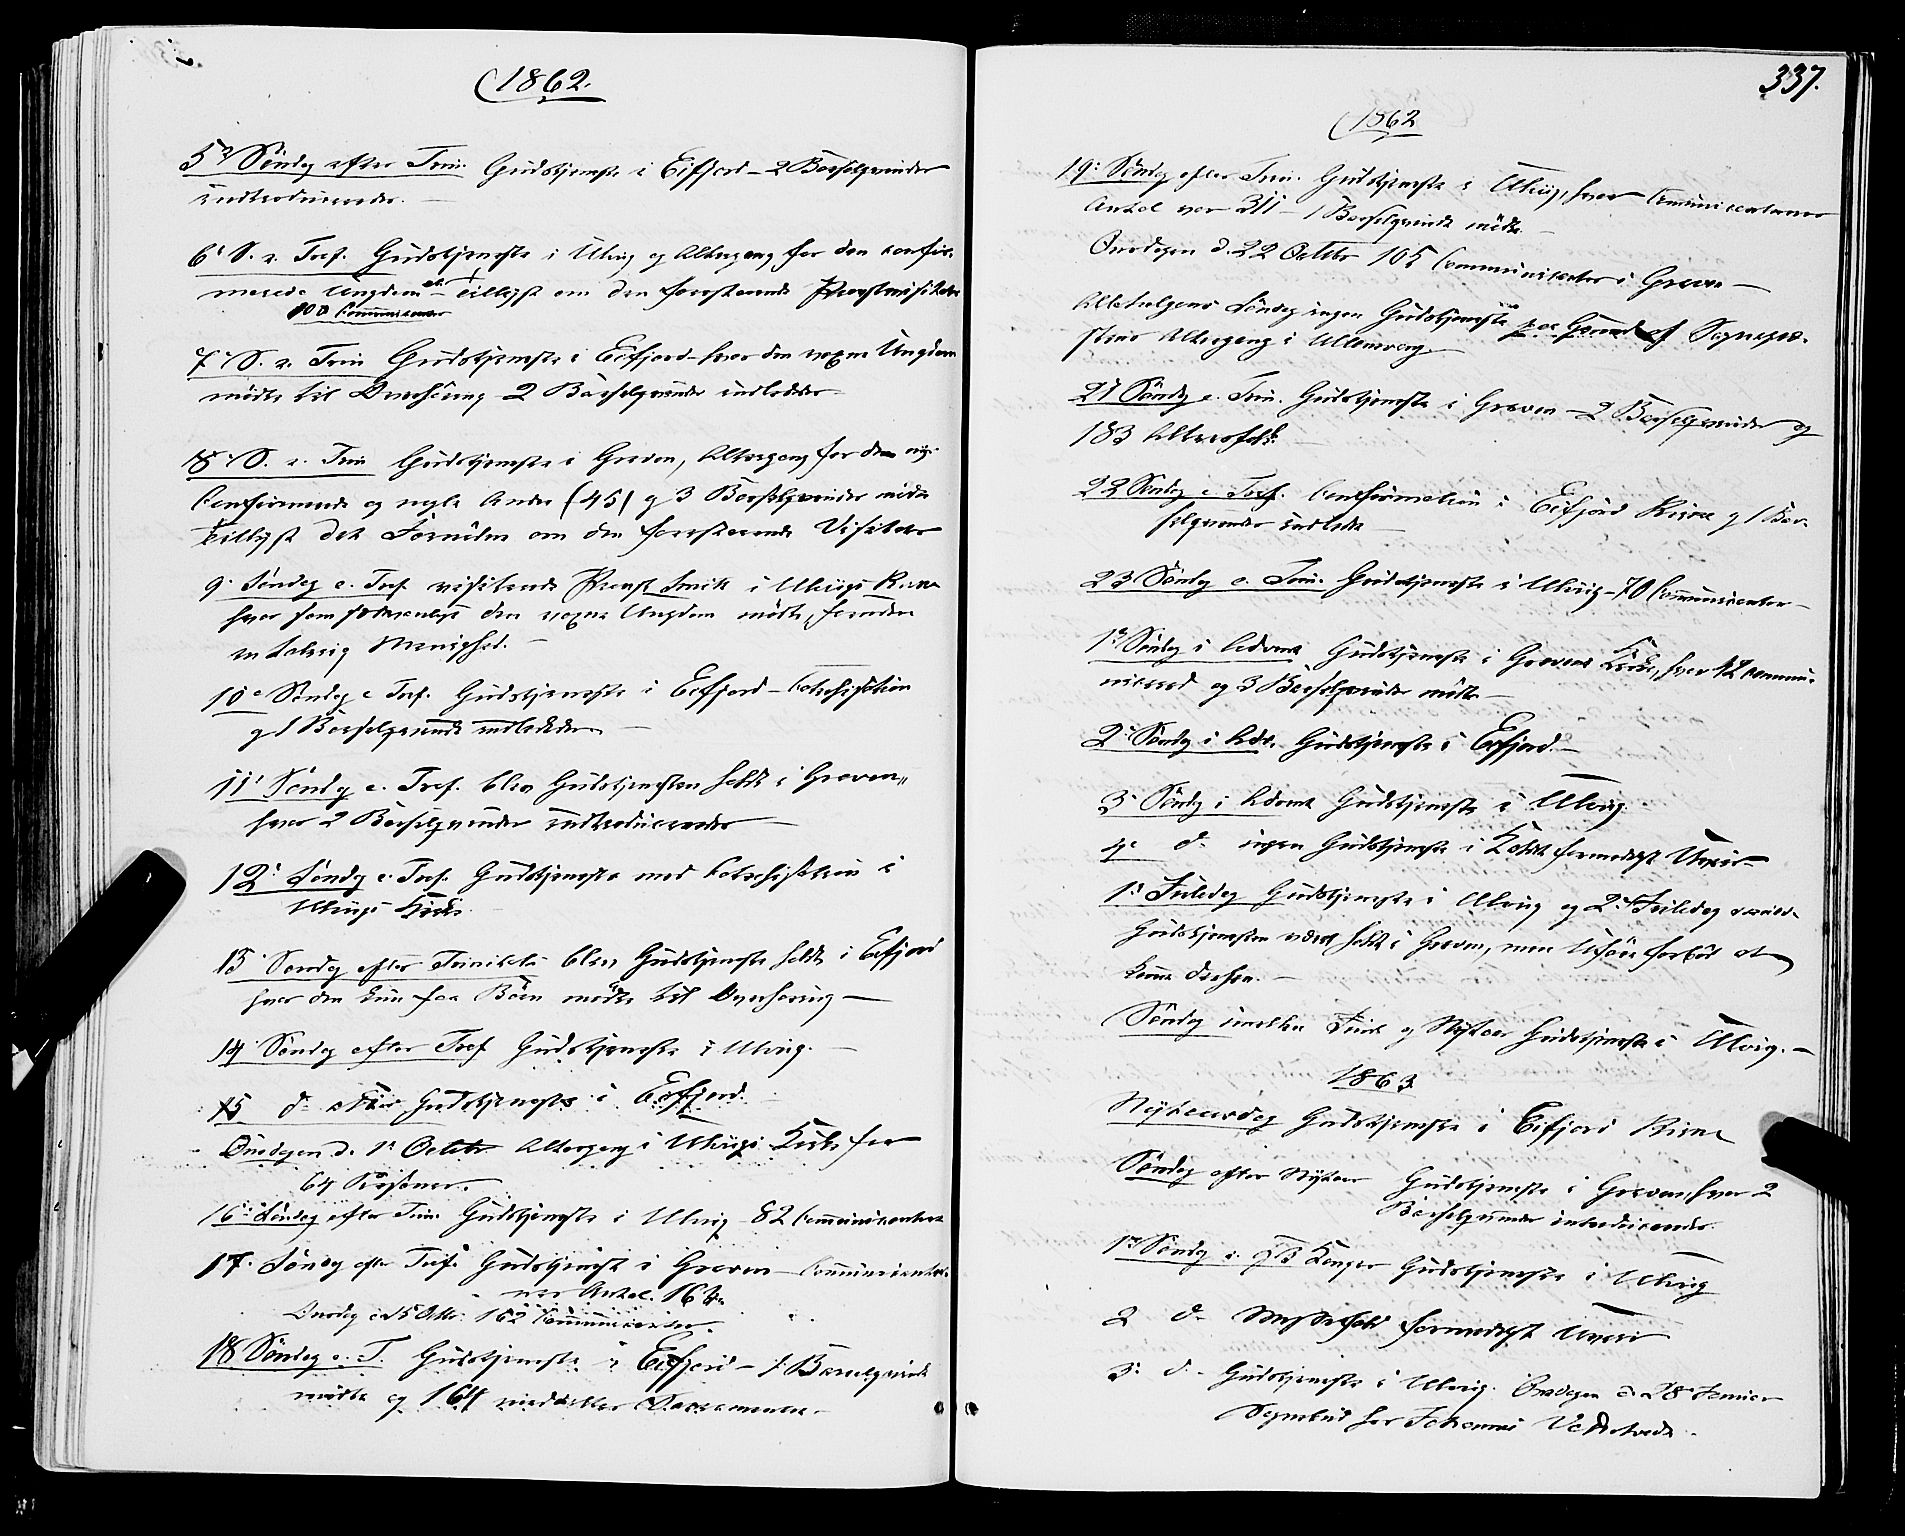 1862.
5te Søndag efter Trin. Gudstjeneste i Eifjord – 2 Barselqvinder
indtroducerede. –
6te S. e. Tref. Gudstjeneste i Ulvig og Altergang for den confir-
merede Ungdom – tillyst om den forestaaende Provstvisitats
100 Communicanter
7. S. e. Trin Gudstjeneste i Eifjord – hvor den voxne Ungdom
mødte til Overhøring – 2 Barselqvinder indledede –
8. S. e. Trin Gudstjeneste i Graven, Altergang for de ny-
confirmerede og nogle Andre (45) og 3 Barselqvinder mødte
tillyst det Fornødne om den forestaaende Visitats
9. Søndag e. Tref. visiterede Provst i Ulvigs Kirke
hvor som sædvanligt den voxne Ungdom mødte, foruden
en talrig Menighed. –
10e Søndag e Tref. Gudstjeneste i Eifjord – Catechisation
og 1 Barselqvinde indledede –
11. Søndag e. Tref. blev Gudstjenesten holdt i Graven,
hvor 2 Barselqvinder indtroducerede –
12. Søndag e. Tref. Gudstjeneste med Catechisation i
Ulvigs Kirke.
13. Søndag efter Trinitatis blev Gudstjeneste holdt i Eifjord
hvor der kun faa Børn mødte til Overhøring –
14. Søndag efter Tref Gudstjeneste i Ulvig. –
15 do Gudstjeneste i Eifjord. –
Onsdagen d. 1e Octobr Altergang i Ulvigs Kirke for
64 Personer.
16. Søndag efter Trin. Gudstjeneste i Ulvig – 82 Communicantere
17. Søndag efter Tref. Gudstjeneste i Graven – Communicanternes
Antal 164
Onsdag d 15 Octbr. 162 Communicanter.
18 Søndag e. T. Gudstjeneste i Eifjord – 1 Barselqvinde
mødte og 164 Sacramentet –
337.
1862
19. Søndag efter Trin. Gudstjeneste i Ulvig, hvor Communicanternes
Antal var 311 – 1 Barselqvinde mødte –
Onsdagen d. 22 Octobr 105 Communicanter i Graven –
Allehelgens Søndag ingen Gudstjeneste paa Grund af Sognepræ-
stens Altergang i Ullensvang
21 Søndag e. Trin. Gudstjeneste i Graven – 2 Barselqvinder og
183 Altersfolk –
22 Søndag e Tref. Confirmation i Eifjord Kirke og 1 Bar-
selqvinde indledet –
23 Søndag e. Trin. Gudstjeneste i Ulvig – 70 Communicanter –
1e Søndag i Advent Gudstjeneste i Gravens Kirke, hvor 12 commu-
nicered og 3 Barselqvinder mødte –
2. Søndag i Adv. Gudstjeneste i Eifjord. –
3. Søndag i Advent Gudstjeneste i Ulvig.
4e do ingen Gudstjeneste i formedelst Uveir
1e Juledag Gudstjeneste i Ulvig og 2. Juledag skulde
Gudstjenesten været holdt i Graven, men Uføre forbød at
komme derhen. –
Søndag imellem Juul og Nytaar Gudstjeneste i Ulvig. –
1863
Nytaarsdag Gudstjeneste i Eifjord Kirke
Søndag efter Nytaar Gudstjeneste i Graven, hvor 2
Barselqvinder introducerede.
1e Søndag e. H 3 Konger Gudstjeneste i Ulvig
2 do Messefald formedelst Uveir
3. do Gudstjeneste i Ulvig. Onsdagen d. 28 Januar
Sognebud hos Johannes